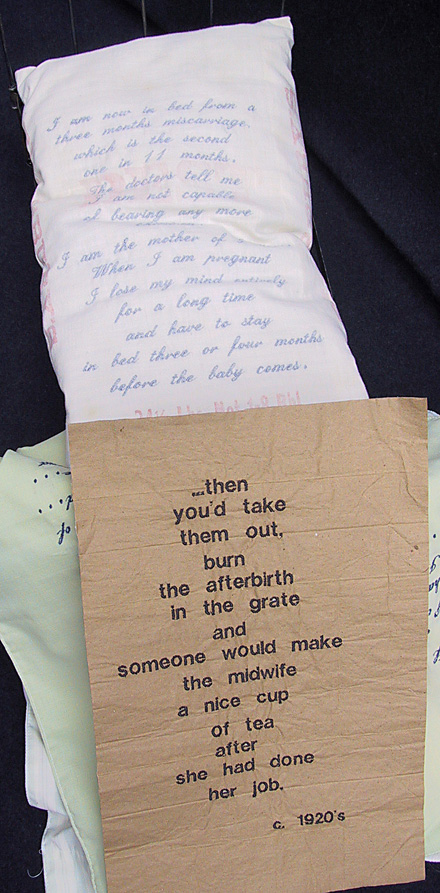 I am now in bed from a
three months miscarriage.
which is the second
one in 11 months.
The doctors tell me
I am not capable
of bearing any more
I am the mother of
When I am pregnant
I lose my mind entirely
for a long time
and have to stay
in bed three or four months
before the baby comes.
...then
you'd take
them out,
burn
the afterbirth
in the grate
and
someone would make
the midwife
a nice cup
of tea
after
she had done
her job.
c. 1920's